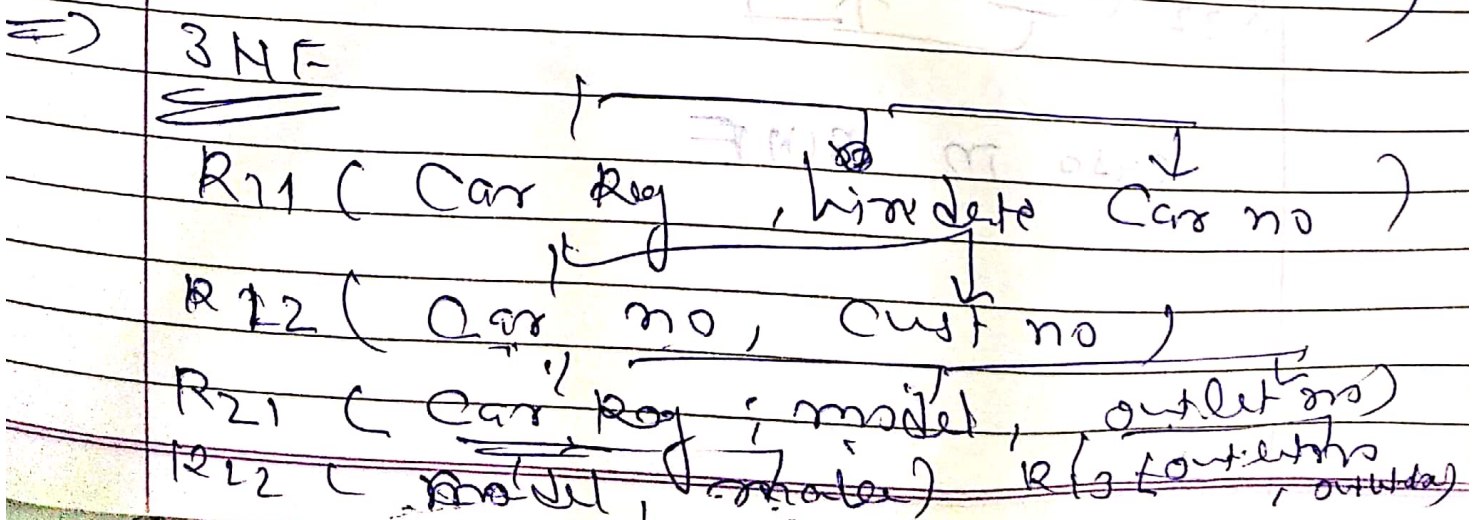 => 3NF
R11 ( Car Reg , hire date Car no )
R12 ( Car no, Cust no )
R21 ( Car Reg , model, outlet no)
R22 ( model, make) R13 (outletno
, outletloc)